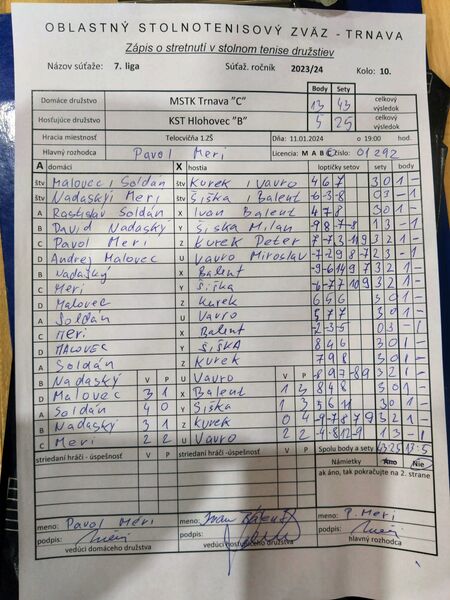 OBLASTNÝ STOLNOTENISOVÝ ZVÄZ - TRNAVA
Zápis o stretnutí v stolnom tenise družstiev
Názov súťaže: 7. liga Súťaž. ročník 2023/24 Kolo: 10.
Body Sety
Domáce družstvo MSTK Trnava "C" 13 43 celkový výsledok
Hosťujúce družstvo KST Hlohovec "B" 5 25 celkový výsledok
Hracia miestnosť Telocvičňa 1.ZŠ Dňa: 11.01.2024 o 19:00 hod.
Hlavný rozhodca Pavol Meri Licencia: M A B C číslo: 01292
A domáci X hostia loptičky setov sety body
štv Malovec i Soldán štv Kurek i Vavro 4 6 7 3 0 1 -
štv Nadaský i Meri štv Šiška i Balent -6 -3 -8 0 3 - 1
A Rastislav Soldán X Ivan Balent 4 7 8 3 0 1 -
B David Nadaský Y Šiška Milan -9 8 -7 -8 1 3 - 1
C Pavol Meri Z Kurek Peter 3 2 1 -
D Andrej Malovec U Vavro Miroslav 3 2 1 -
B Nadaský X Balent 3 2 1 -
C Meri Y Šiška 3 2 1 -
D Malovec Z Kurek 6 5 6 3 0 1 -
A Soldán U Vavro 5 7 7 3 0 1 -
C Meri X Balent -2 -3 -5 0 3 - 1
D Malovec Y Šiška 8 4 6 3 0 1 -
A Soldán Z Kurek 7 9 8 3 0 1 -
B Nadaský V P U Vavro V P 3 2 1 -
D Malovec 3 1 X Balent 1 3 8 4 8 3 0 1 -
A Soldán 4 0 Y Šiška 1 3 5 6 11 3 0 1 -
B Nadaský 3 1 Z Kurek 0 4 -9 -7 8 7 9 3 2 1 -
C Meri 2 2 U Vavro 2 2 -4 -8 12 -9 1 3 - 1
striedaní hráči - úspešnosť V P striedaní hráči -úspešnosť V P Spolu body a sety 43:25 13:5
Námietky Áno Nie
ak áno, tak pokračujte na 2. strane
meno: Pavol Meri meno: Ivan Balent meno: P. Meri
podpis: podpis: podpis:
vedúci domáceho družstva vedúci hosťujúceho družstva hlavný rozhodca